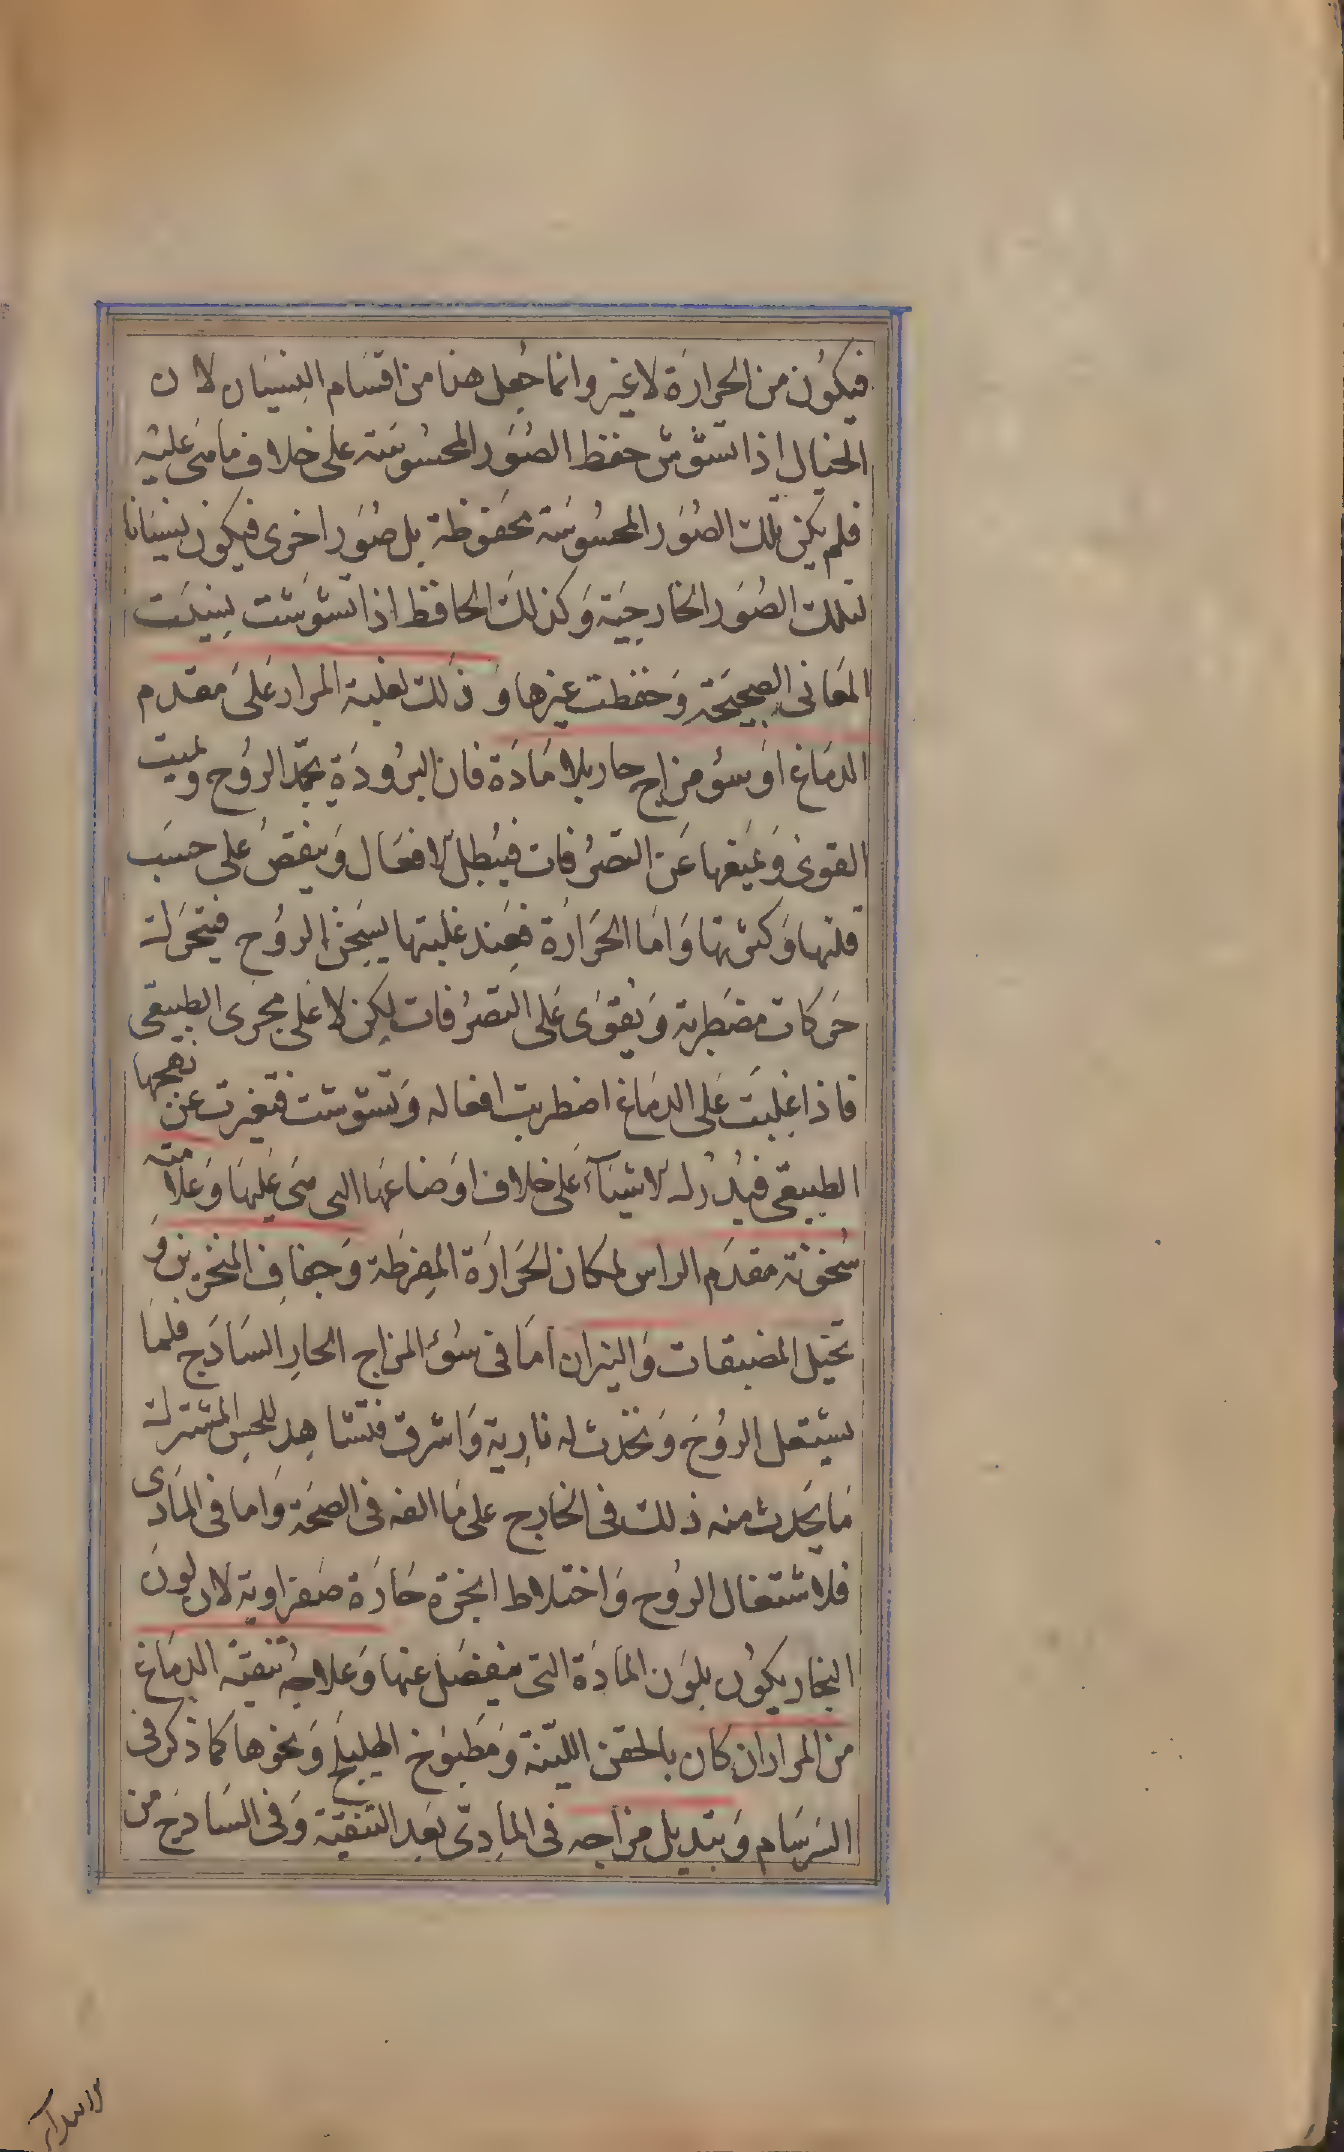 فيكون من الحرارة لا غير وانما جعل هذا من اقسام النسيان لان
الخيال اذا تشوش حفظ الصور المحسوسة على خلاف ما هى عليه
فلم يكن تلك الصور المحسوسة محفوظة بل صور اخرى فيكون نسيانا
لتلك الصور الخارجية وكذلك الحافظ اذا تشوشت نسيت
المعانى الصحيحة وحفظت غيرها وذلك لغلبة المرار على مقدم
الدماغ او سوء مزاج حار بلا مادة فان البرودة تجمد الروح ويميت
القوى ويمنعها عن التصرفات فيبطل الافعال وينقص على حسب
قلتها وكثرتها واما الحرارة فعند غلبتها يسخن الروح فيتحرك
حركات مضطربة ويقوى على التصرفات لكن لا على مجرى الطبيعى
فاذا غلبت على الدماغ اضطربت افعاله وتشوشت فتغيرت عن نهجها
الطبيعى فيدرك الاشياء على خلاف اوضاعها التى هى عليها وعلامته
سخونة مقدم الراس لمكان الحرارة المفرطة وجفاف المنخرين و
تخيل المضيقات والنيران اما فى سوء المزاج الحار الساذج فلما
يشتعل الروح ويحدث له نارية واشرق فتشاهد للحس المشترك
ما يحدث منه ذلك فى الخارج على ما الفه فى الصحة واما فى المادى
فلاشتعال الروح واختلاط ابخرة حارة صفراوية لان لون
البخار يكون بلون المادة التى ينفصل عنها وعلاجه تنقية الدماغ
من المرار ان كان بالحقن اللينة ومطبوخ الهليلج ونحوها كما ذكر فى
السرسام وبتديل مزاجه فى المادى بعد التنقية وفى الساذج من